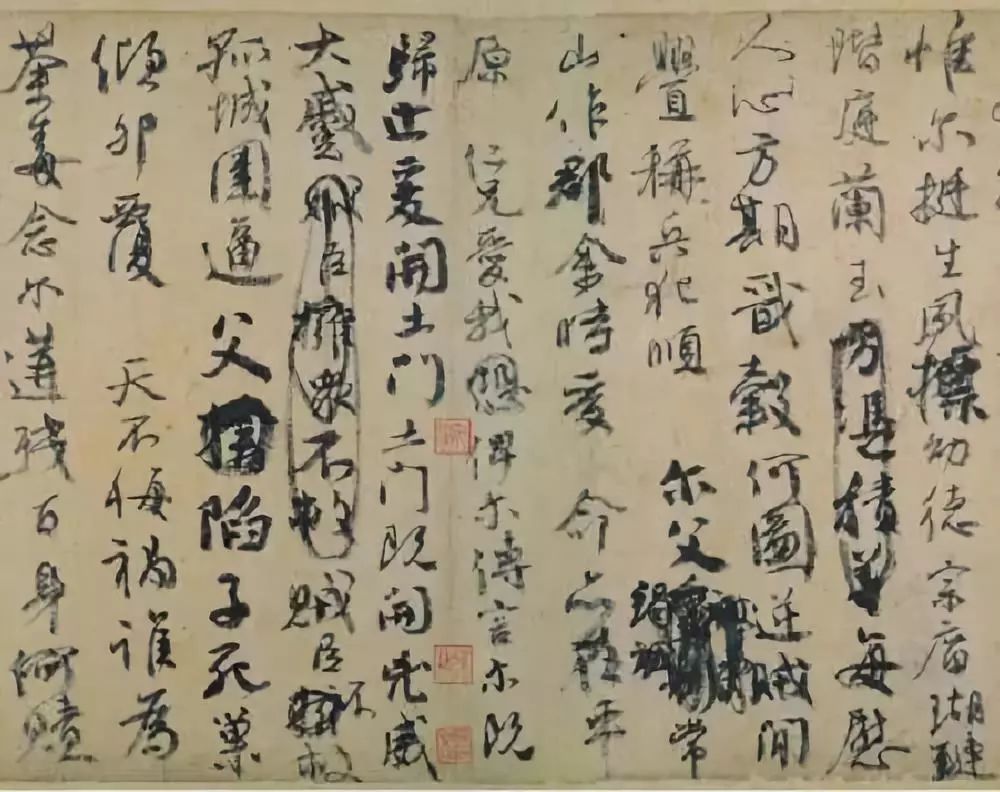 惟尔挺生夙標幼德宗廟瑚璉
階庭蘭玉方憑積善每慰
人心方期戩穀何圖逆賊閒
釁稱兵犯順尔父竭誠常
山作郡余時受命亦在平
原仁兄愛我恐俾尔傳言尔既
歸止爰開土門土門既開凶威
大蹙賊臣擁衆不救賊臣不救
孤城圍逼父陷子死巢
傾卵覆天不悔禍誰為
荼毒念尔遘殘百身何贖